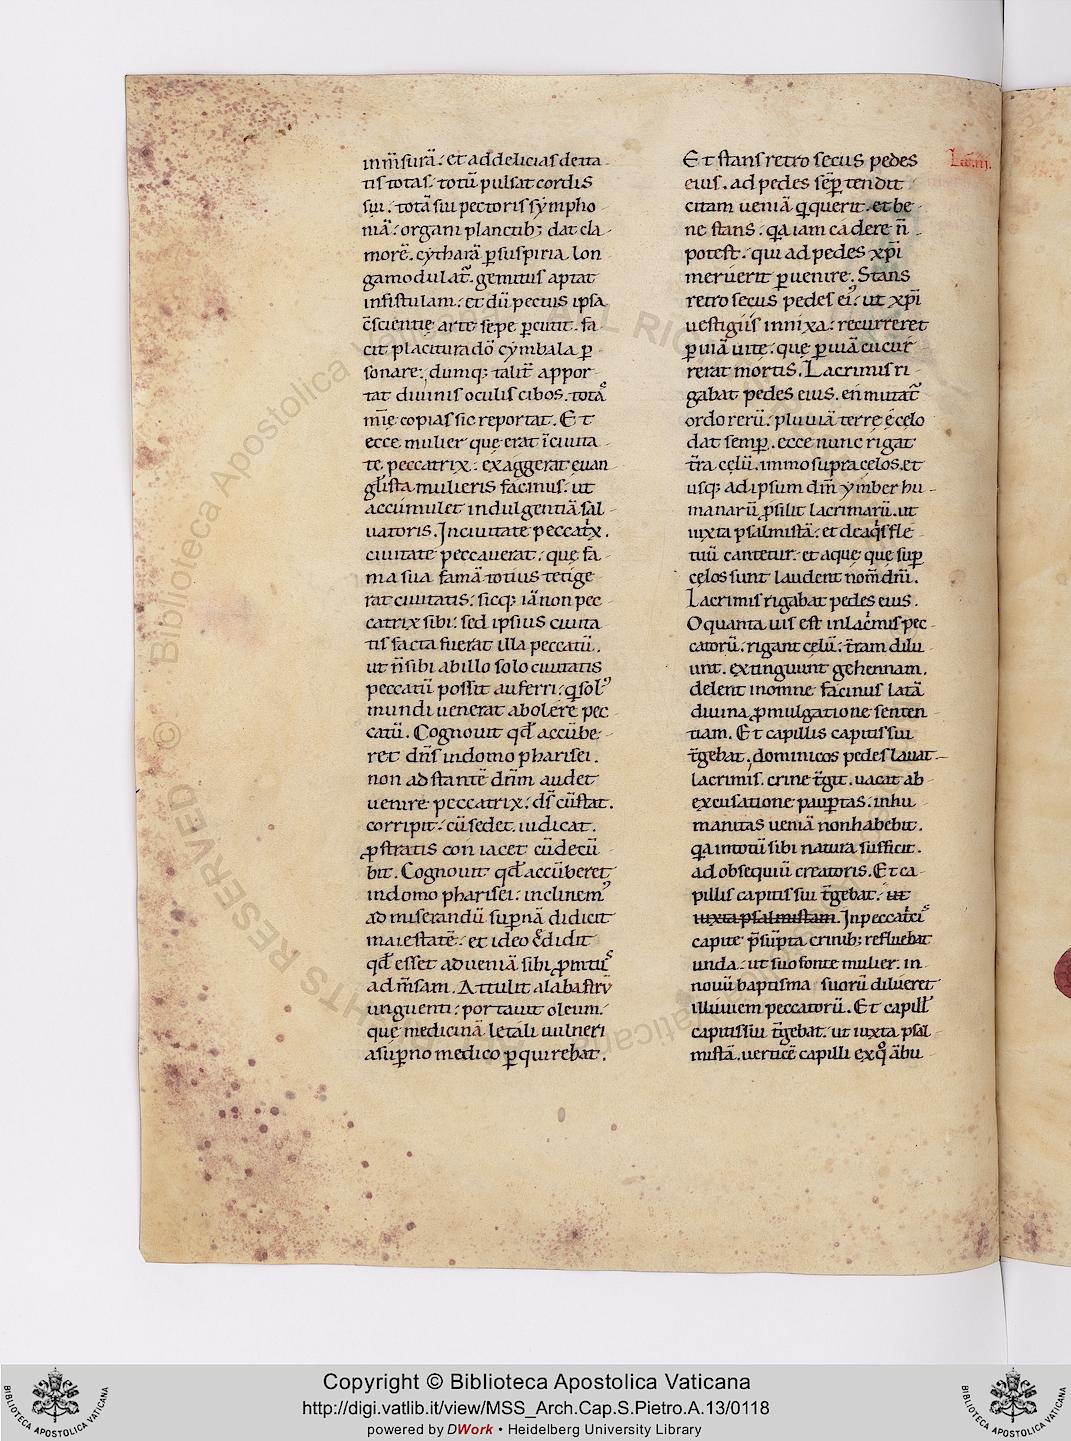 inm̃surã: et ad delicias deita
tis totas. totũ pulsat cordis
sui. totã sui pectoris sympho
niã: organi planctib; dat cla
morẽ. cytharã ꝑ suspiria lon
ga modulat᷑. gemitus aptat
in fistulam: et dũ pectus ipsa
c̃scientię arte sępe ꝑcutit. fa
cit placituradõ cymbala ꝑ
sonare: dumq; talit᷑ appor
tat diuinis oculis cibos. totã
m̃ię copias sic reportat. Et
ecce mulier que erat ĩciuita
te peccatrix: exaggerat euan
gl̃ista mulieris facinus: ut
accumulet indulgentiã sal
uatoris. In ciuitate peccat᷑x.
ciuitate peccauerat: que fa
ma sua famã totius tetige
rat ciuitatis: sicq; iã non pec
catrix sibi: sed ipsius ciuita
tis facta fuerat illa peccatũ.
ut ñ sibi ab illo solo ciuitatis
peccatũ possit auferri: q̃ solꝰ
mundi uenerat abolere pec
catũ. Cognouit qd̃ accũbe
ret dñs in domo pharisei.
non ad stantẽ dñm audet
uenire peccatrix: d̃s cũ stat.
corripit: cũ sedet. iudicat.
ꝓstratis con iacet cũ decũ
bit. Cognouit qd̃ accũberet
in domo pharisei: inclinemꝰ
ad miserandũ suꝑnã didicit
maiestatẽ: et ideo c̃didit
qd̃ esset ad ueniã sibi ꝓmtuꝰ
ad m̃sam. Attulit alabastrũ
unguenti: portauit oleum.
que medicinã letali uulneri
a suꝑno medico ꝑquirebat.
Et stans retro secus pedes
eius. ad pedes sẽꝑ tendit
citam ueniã q̃ querit. et be
ne stans: q̃a iam cadere ñ
potest. qui ad pedes xp̃i
meruerit ꝑuenire. Stans
retro secus pedes eiꝰ: ut xp̃i
uestigiis innixa: recurreret
ꝑ uiã uite: que ꝑ uiã cucur̃
rerat mortis. Lacrimis ri
gabat pedes eius. en mutat᷑
ordo rerũ: pluuiã terrę e celo
dat semꝑ. ecce nunc rigat
t̃ra cęlũ. immo supra celos. et
usq; ad ipsum dñm ymber hu
manarũ ꝓsilit lacrimarũ. ut
iuxta psalmistã: et de aq̃s fle
tuũ cantetur: et aque que suꝑ
cęlos sunt laudent nom̃ dñi.
Lacrimis rigabat pedes eius.
O quanta uis est in lac̃mis pec
catorũ. rigant cęlũ: t̃ram dilu
unt. extinguunt gehennam.
delent in omne facinus latã
diuina ꝓmulgatione senten
tiam. Et capillis capitis sui
t̃gebat. dominicos pedes lauat
lacrimis. crine t̃git. uacat ab
excusatione pauꝑtas. inhu
manitas ueniã non habebit.
q̃a in totũ sibi natura sufficit.
ad obsequiũ creatoris. Et ca
pillis capitis sui t̃gebat: ut
iuxta psalmistam. In peccat̃cis
capite p̃sũpta crinib; refluebat
unda: ut suo fonte mulier. in
nouũ baptisma suorũ dilueret
illuuiem peccatorũ. Et capill̃
capitis sui t̃gebat. ut iuxta psal
mistã. uerticẽ capilli ex q̊ ãbu
BIBLIOTECA APOSTOLICA VATICANA
Copyright © Biblioteca Apostolica Vaticana
http://digi.vatlib.it/view/MSS_Arch.Cap.S.Pietro.A.13/0118
powered by DWork • Heidelberg University Library
BIBLIOTECA APOSTOLICA VATICANA